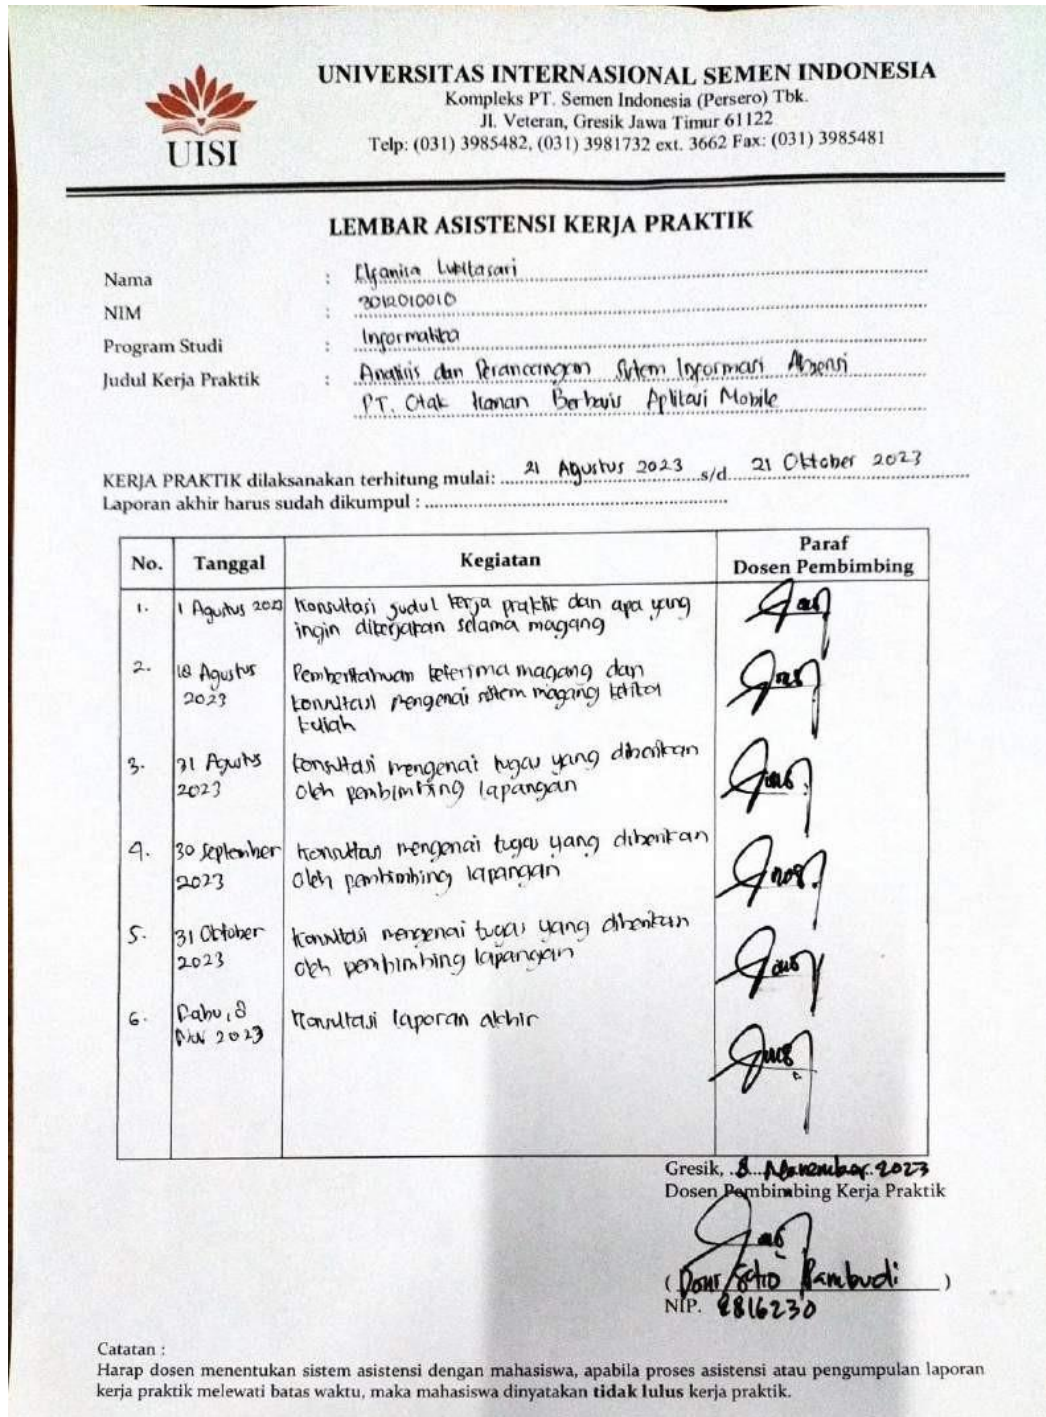 UISI
UNIVERSITAS INTERNASIONAL SEMEN INDONESIA
Kompleks PT. Semen Indonesia (Persero) Tbk.
Jl. Veteran, Gresik Jawa Timur 61122
Telp: (031) 3985482, (031) 3981732 ext. 3662 Fax: (031) 3985481
LEMBAR ASISTENSI KERJA PRAKTIK
Nama : Elfanisa Lupitasari
NIM : 3012010010
Program Studi : Informatika
Judul Kerja Praktik : Analisis dan Perancangan Sistem Informasi Absensi
PT. Otak Kanan Berbasis Aplikasi Mobile
KERJA PRAKTIK dilaksanakan terhitung mulai: 21 Agustus 2023 s/d 21 Oktober 2023
Laporan akhir harus sudah dikumpul :
No. Tanggal Kegiatan Paraf Dosen Pembimbing
1. 1 Agustus 2023 Konsultasi judul kerja praktik dan apa yang
ingin dikerjakan selama magang
2. 18 Agustus 2023 Pemberitahuan keterima magang dan
konsultasi mengenai sistem magang
kuliah
3. 31 Agustus 2023 Konsultasi mengenai tugas yang diberikan
oleh pembimbing lapangan
4. 30 September 2023 Konsultasi mengenai tugas yang diberikan
oleh pembimbing lapangan
5. 31 Oktober 2023 Konsultasi mengenai tugas yang diberikan
oleh pembimbing lapangan
6. Rabu, 8 Nov 2023 Konsultasi laporan akhir
Gresik, 8 November 2023
Dosen Pembimbing Kerja Praktik
( Doni Setio Pambudi )
NIP. 8816230
Catatan :
Harap dosen menentukan sistem asistensi dengan mahasiswa, apabila proses asistensi atau pengumpulan laporan
kerja praktik melewati batas waktu, maka mahasiswa dinyatakan tidak lulus kerja praktik.